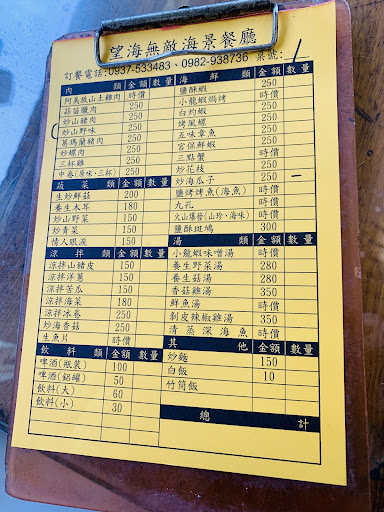 望海無敵海景餐廳
訂餐電話:0937-533483、0982-938736 桌號:1
肉類 金額 數量
阿美放山土雞肉 時價
蒜苗臘肉 250
炒山豬肉 250
炒山野味 250
葛瑪蘭豬肉 250
炒螺肉 250
三杯雞 250
中卷(原味、三杯) 250
蔬菜類 金額 數量
生炒鮮菇 200
養生木耳 180
炒山野菜 150
炒青菜 150
情人眼淚 150
涼拌類 金額 數量
涼拌山豬皮 150
涼拌洋蔥 150
涼拌苦瓜 150
涼拌海菜 180
涼拌冰卷 250
炒海香菇 250
生魚片 時價
飲料類 金額 數量
啤酒(瓶裝) 100
啤酒(鋁罐) 50
飲料(大) 60
飲料(小) 30
海鮮類 金額 數量
鹽酥蝦 250
小龍蝦焗烤 時價
白灼蝦 250
烤風螺 250
五味章魚 250
宮保鮮蝦 250
三點蟹 時價
炒花枝 250
炒海瓜子 250 一
鹽烤烤魚(海魚) 時價
九孔 時價
火山爆發(山珍、海味) 時價
鹽酥斑鳩 300
湯類 金額 數量
小龍蝦味噌湯 時價
養生野菜湯 280
養生菇湯 280
香菇雞湯 350
鮮魚湯 時價
剝皮辣椒雞湯 350
清蒸深海魚 時價
其他 金額 數量
炒麵 150
白飯 10
竹筒飯
總計